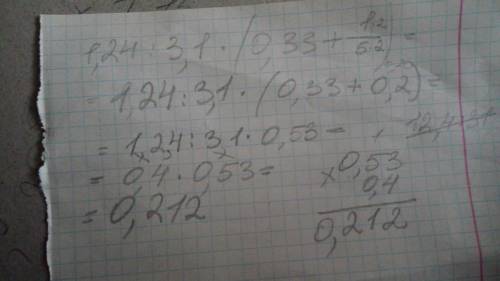 1,24 : 3,1 · (0,33 + 1·2/5·2) =
= 1,24 : 3,1 · (0,33 + 0,2) =
= 1,24 : 3,1 · 0,53 =
= 0,4 · 0,53 =
= 0,212
× 0,53
0,4
0,212